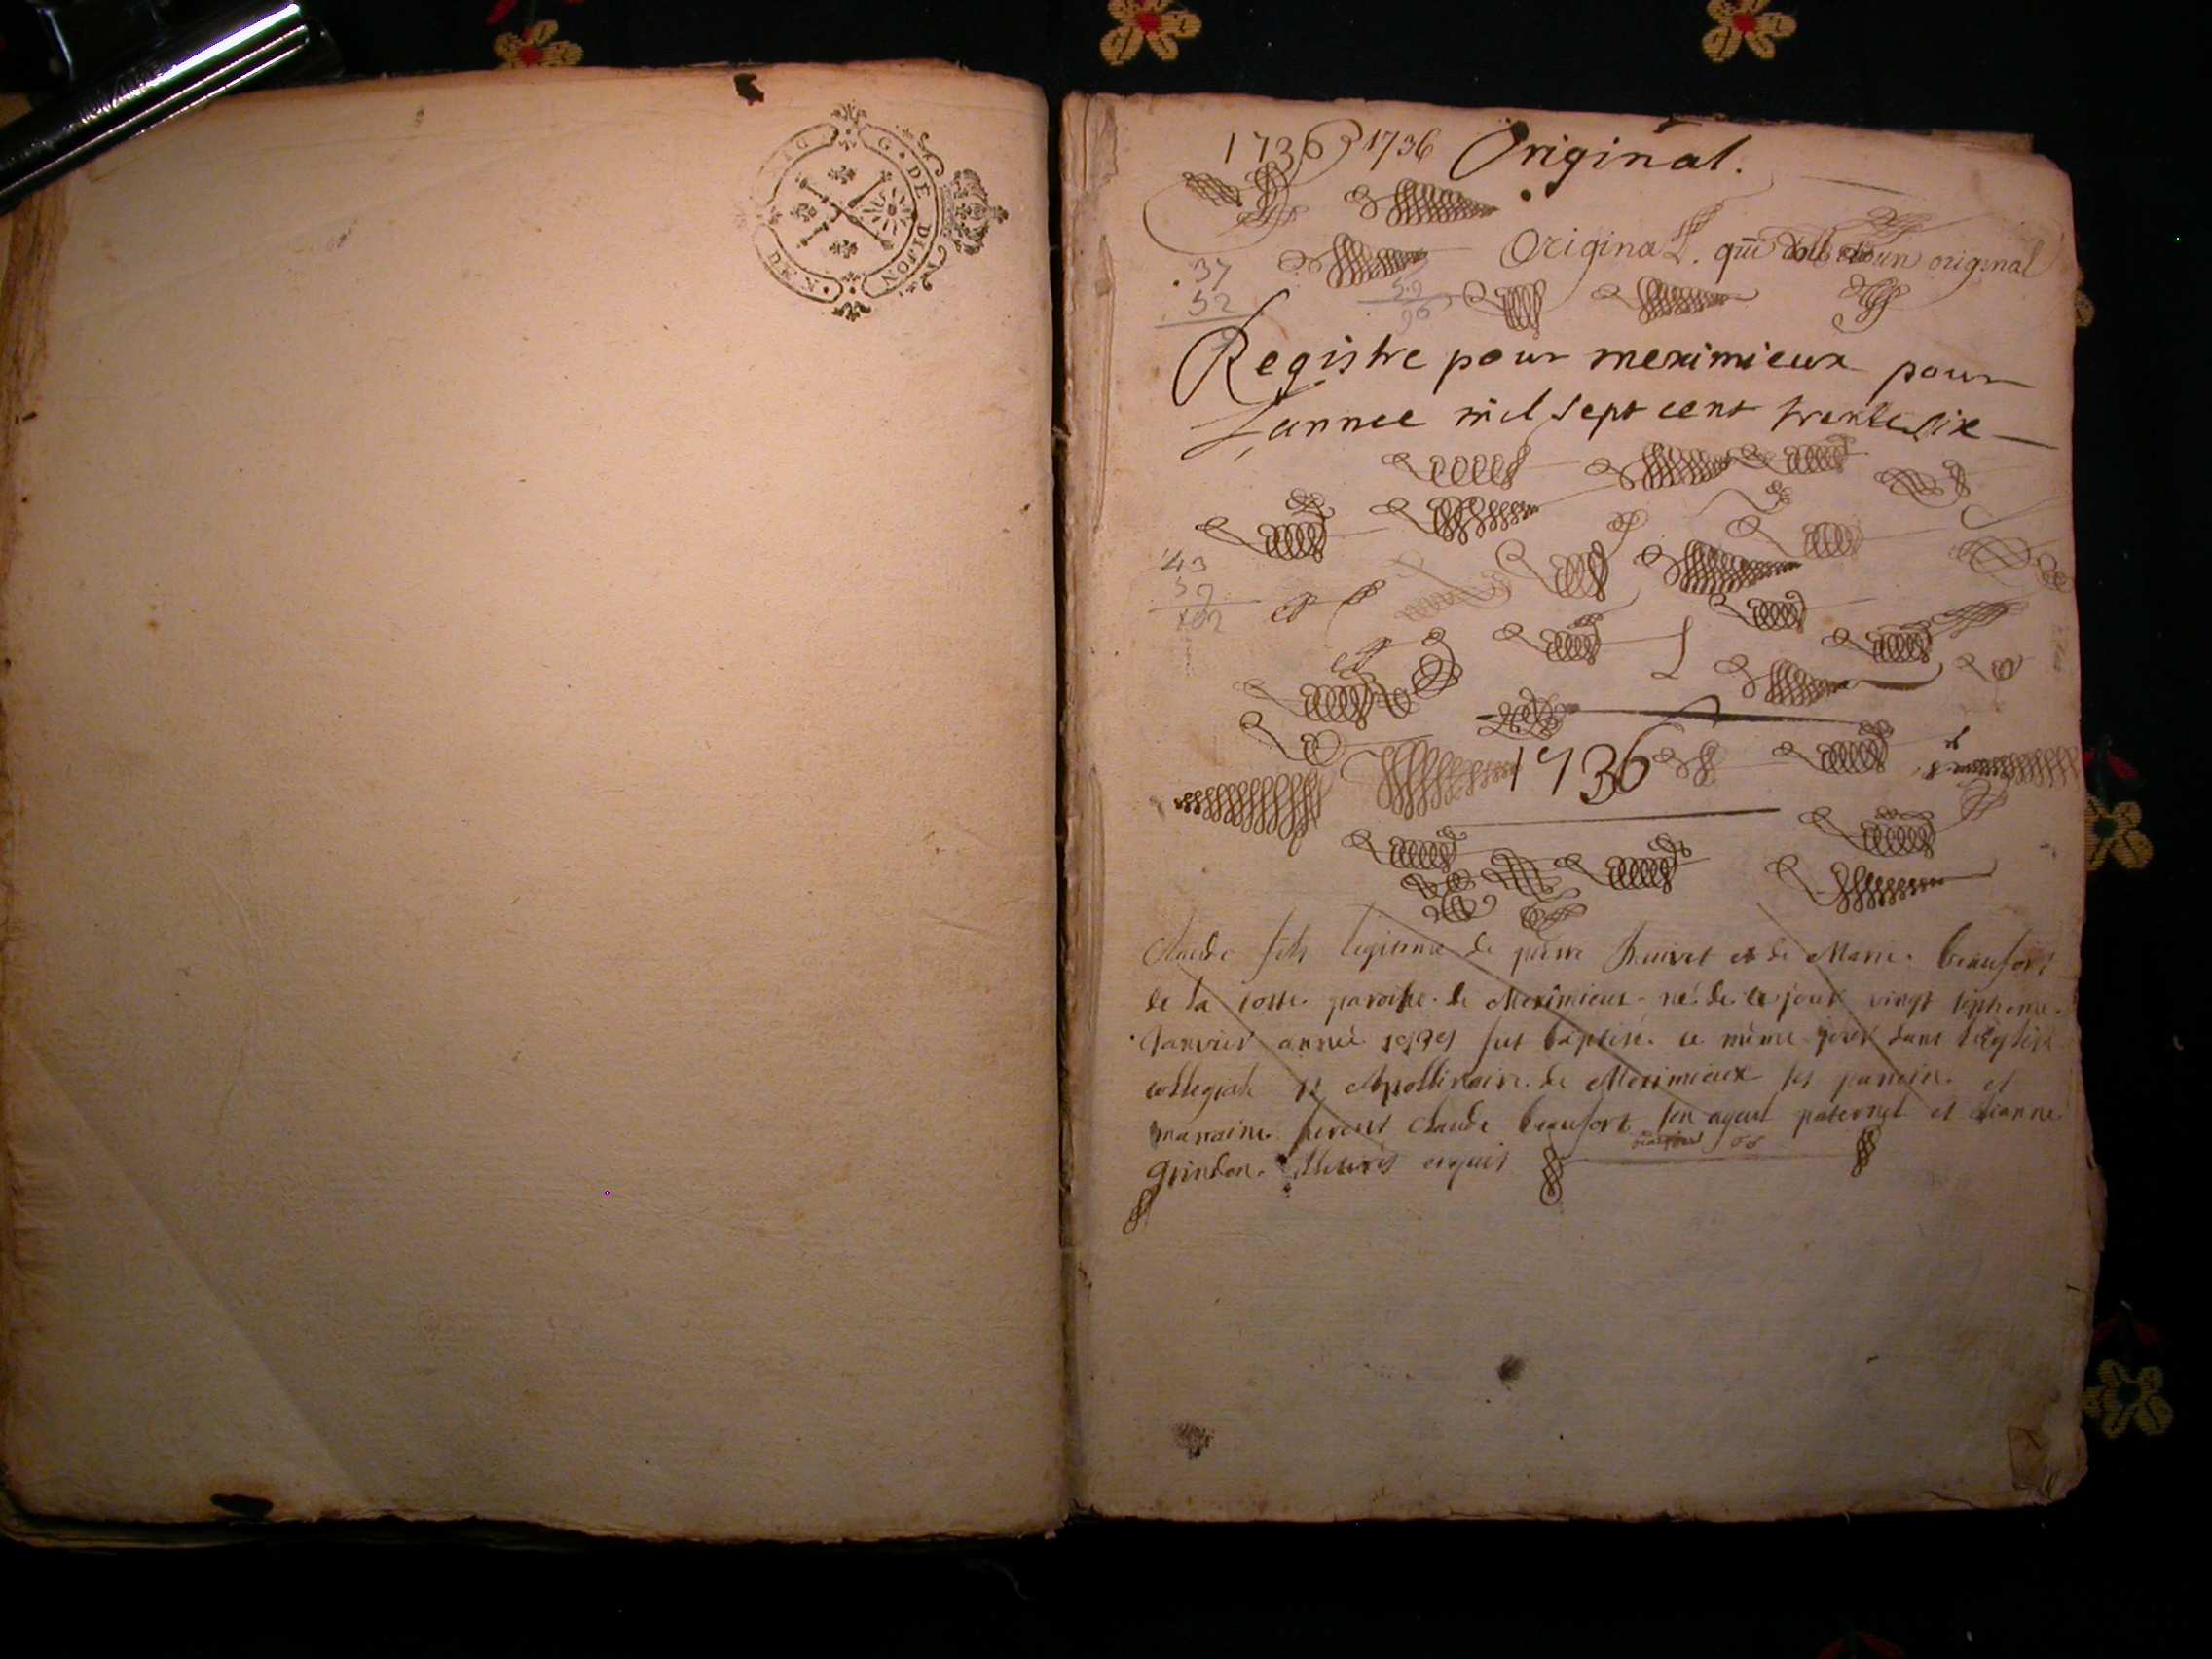 G. DE DIJON
DEN.
1736 1736 Original.
Original. qui doit original
37
52
Registre pour meximieux pour
L'annee mil sept cent trente six
43
59
102
1736
Claude fils legitime de pierre et de Marie beaufort
de la coste paroisse de Meximieux né de ce jour vingt septieme
Janvier année fut baptisé le même jour dans l'Eglise
collegiale St Apollinaire de Meximieux ses parrein et
marraine furent Claude beaufort son ayeul paternel et
grindon. enquis